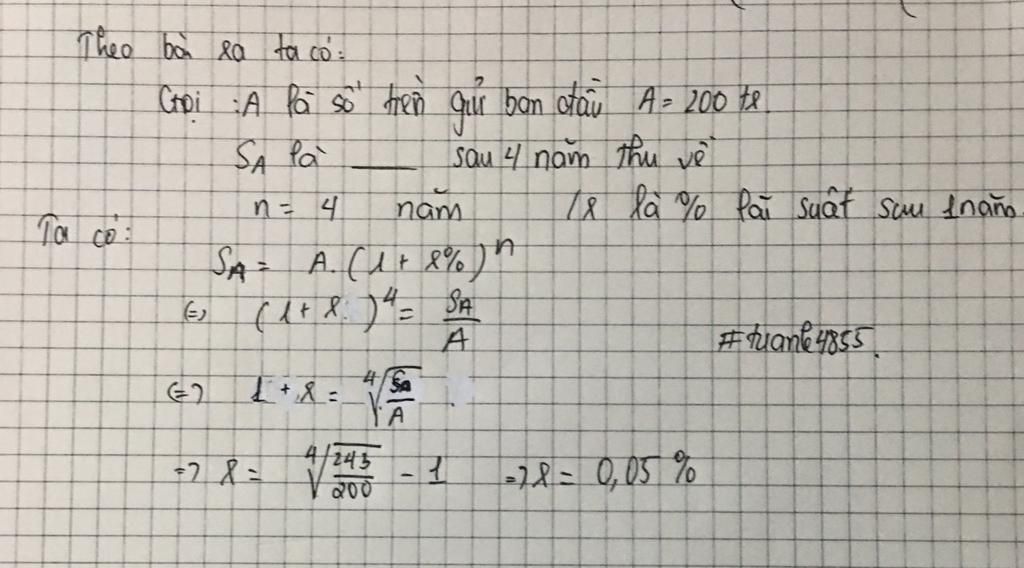 Theo bà ra ta có:
Gọi : A là số tiền gửi ban đầu A = 200 tr.
S_A là ____ sau 4 năm thu về
n = 4 năm / r là % lãi suất sau 1 năm
Ta có:
S_A = A. (1 + r%)^n
(=) (1 + r )^4 = S_A/A
#tuanle4855.
(=) 1 + r = ⁴√(S_A/A)
=) r = ⁴√(243/200) - 1 =) r = 0,05 %